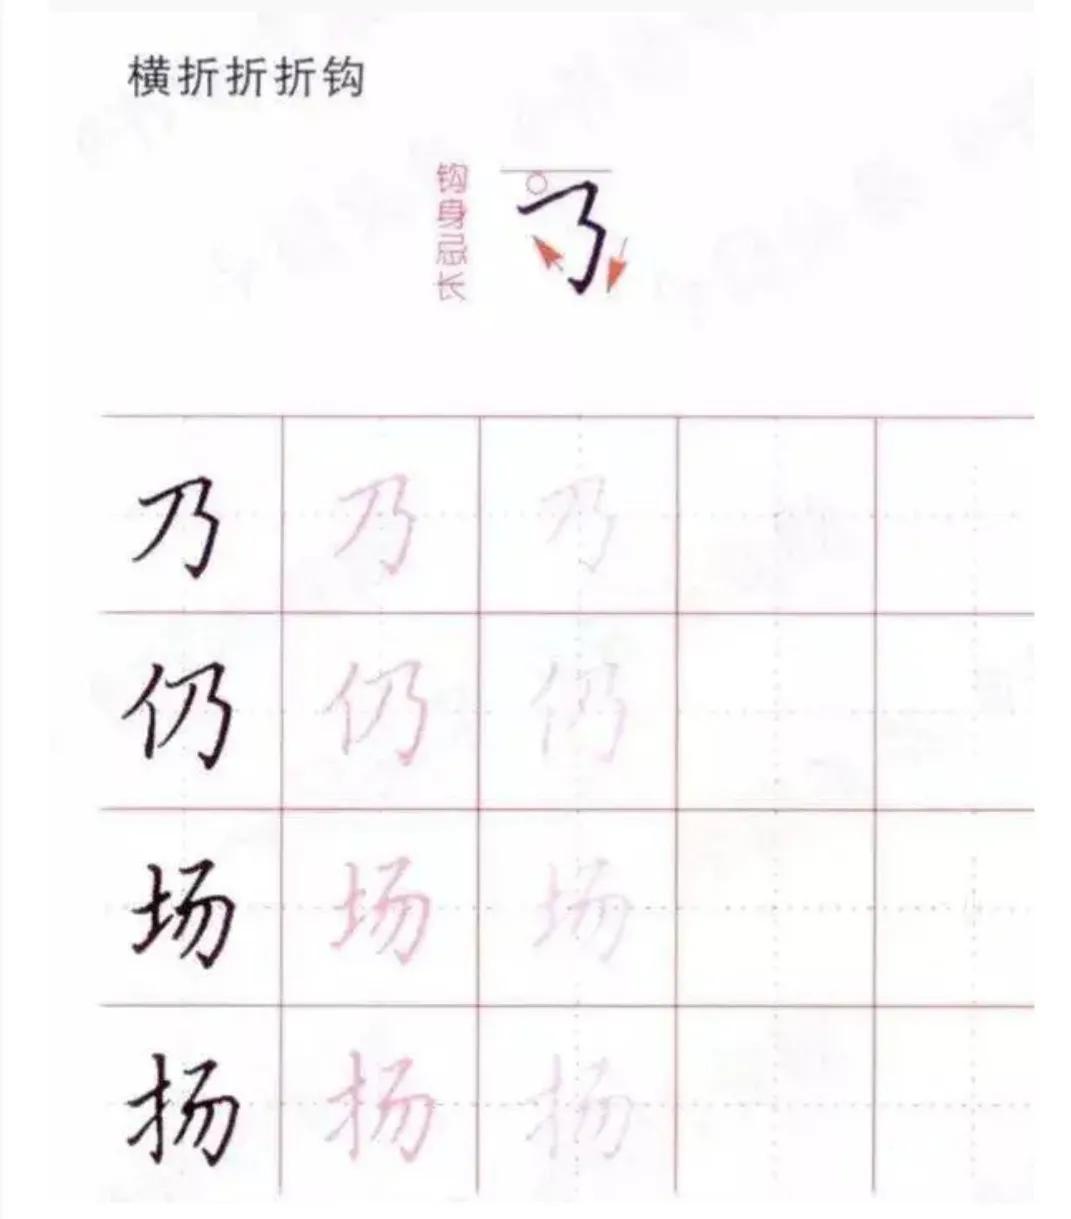 横折折折钩
钩身忌长
乃 乃 乃
仍 仍 仍
场 场 场
扬 扬 扬